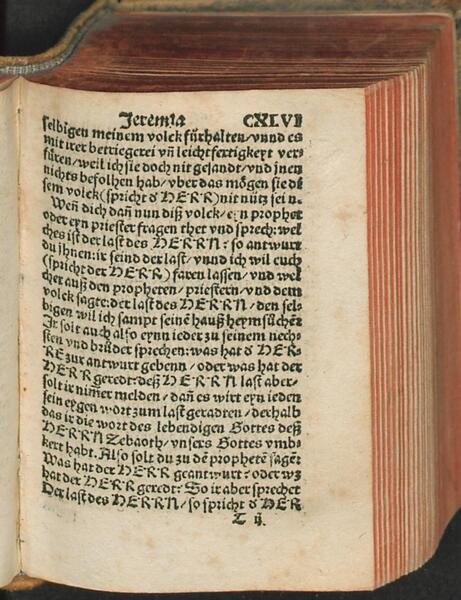 Jeremia CXLVI
selbigen meinem volck fürhalten/vnnd es
mit irer betriegerei vñ leichtfertigkeyt ver-
füren/weil ich sie doch nit gesandt/vnd jnen
nichts befolhen hab/vber das mögen sie di
sem volck (spricht d̕ HERR) nit nütz sein.
Weñ dich dañ nun diß volck/eyn prophet
oder eyn priester fragen thet vnd sprech: wel
ches ist der last des HERRN: so antwurt
du jhnen: ir seind der last/vnnd ich wil euch
(spricht der HERR) faren lassen/vnd wel
cher auß den propheten/priestern/vnd dem
volck sagte: der last des HERRN/den sel-
bigen wil ich sampt seinē hauß heymsůchē
Ir solt auch also eynn ieder zu seinem nech-
sten vnd brůder sprechen: was hat d̕ HER-
RE zur antwurt gebenn/oder was hat der
HERR geredt: deß HERRN last aber-
solt ir nim̄er melden/dañ es wirt eyn ieden
sein eygen wort zum last geradten/derhalb
das ir die wort des lebendigen Gottes deß
HERRN Zebaoth/vnsers Gottes vmb-
kert habt. Also solt du zu dē prophetē sagē:
Was hat der HERR geantwurt: oder wz
hat der HERR geredt: So ir aber sprechet
Der last des HERRN/so spricht d̕ HER
T ij